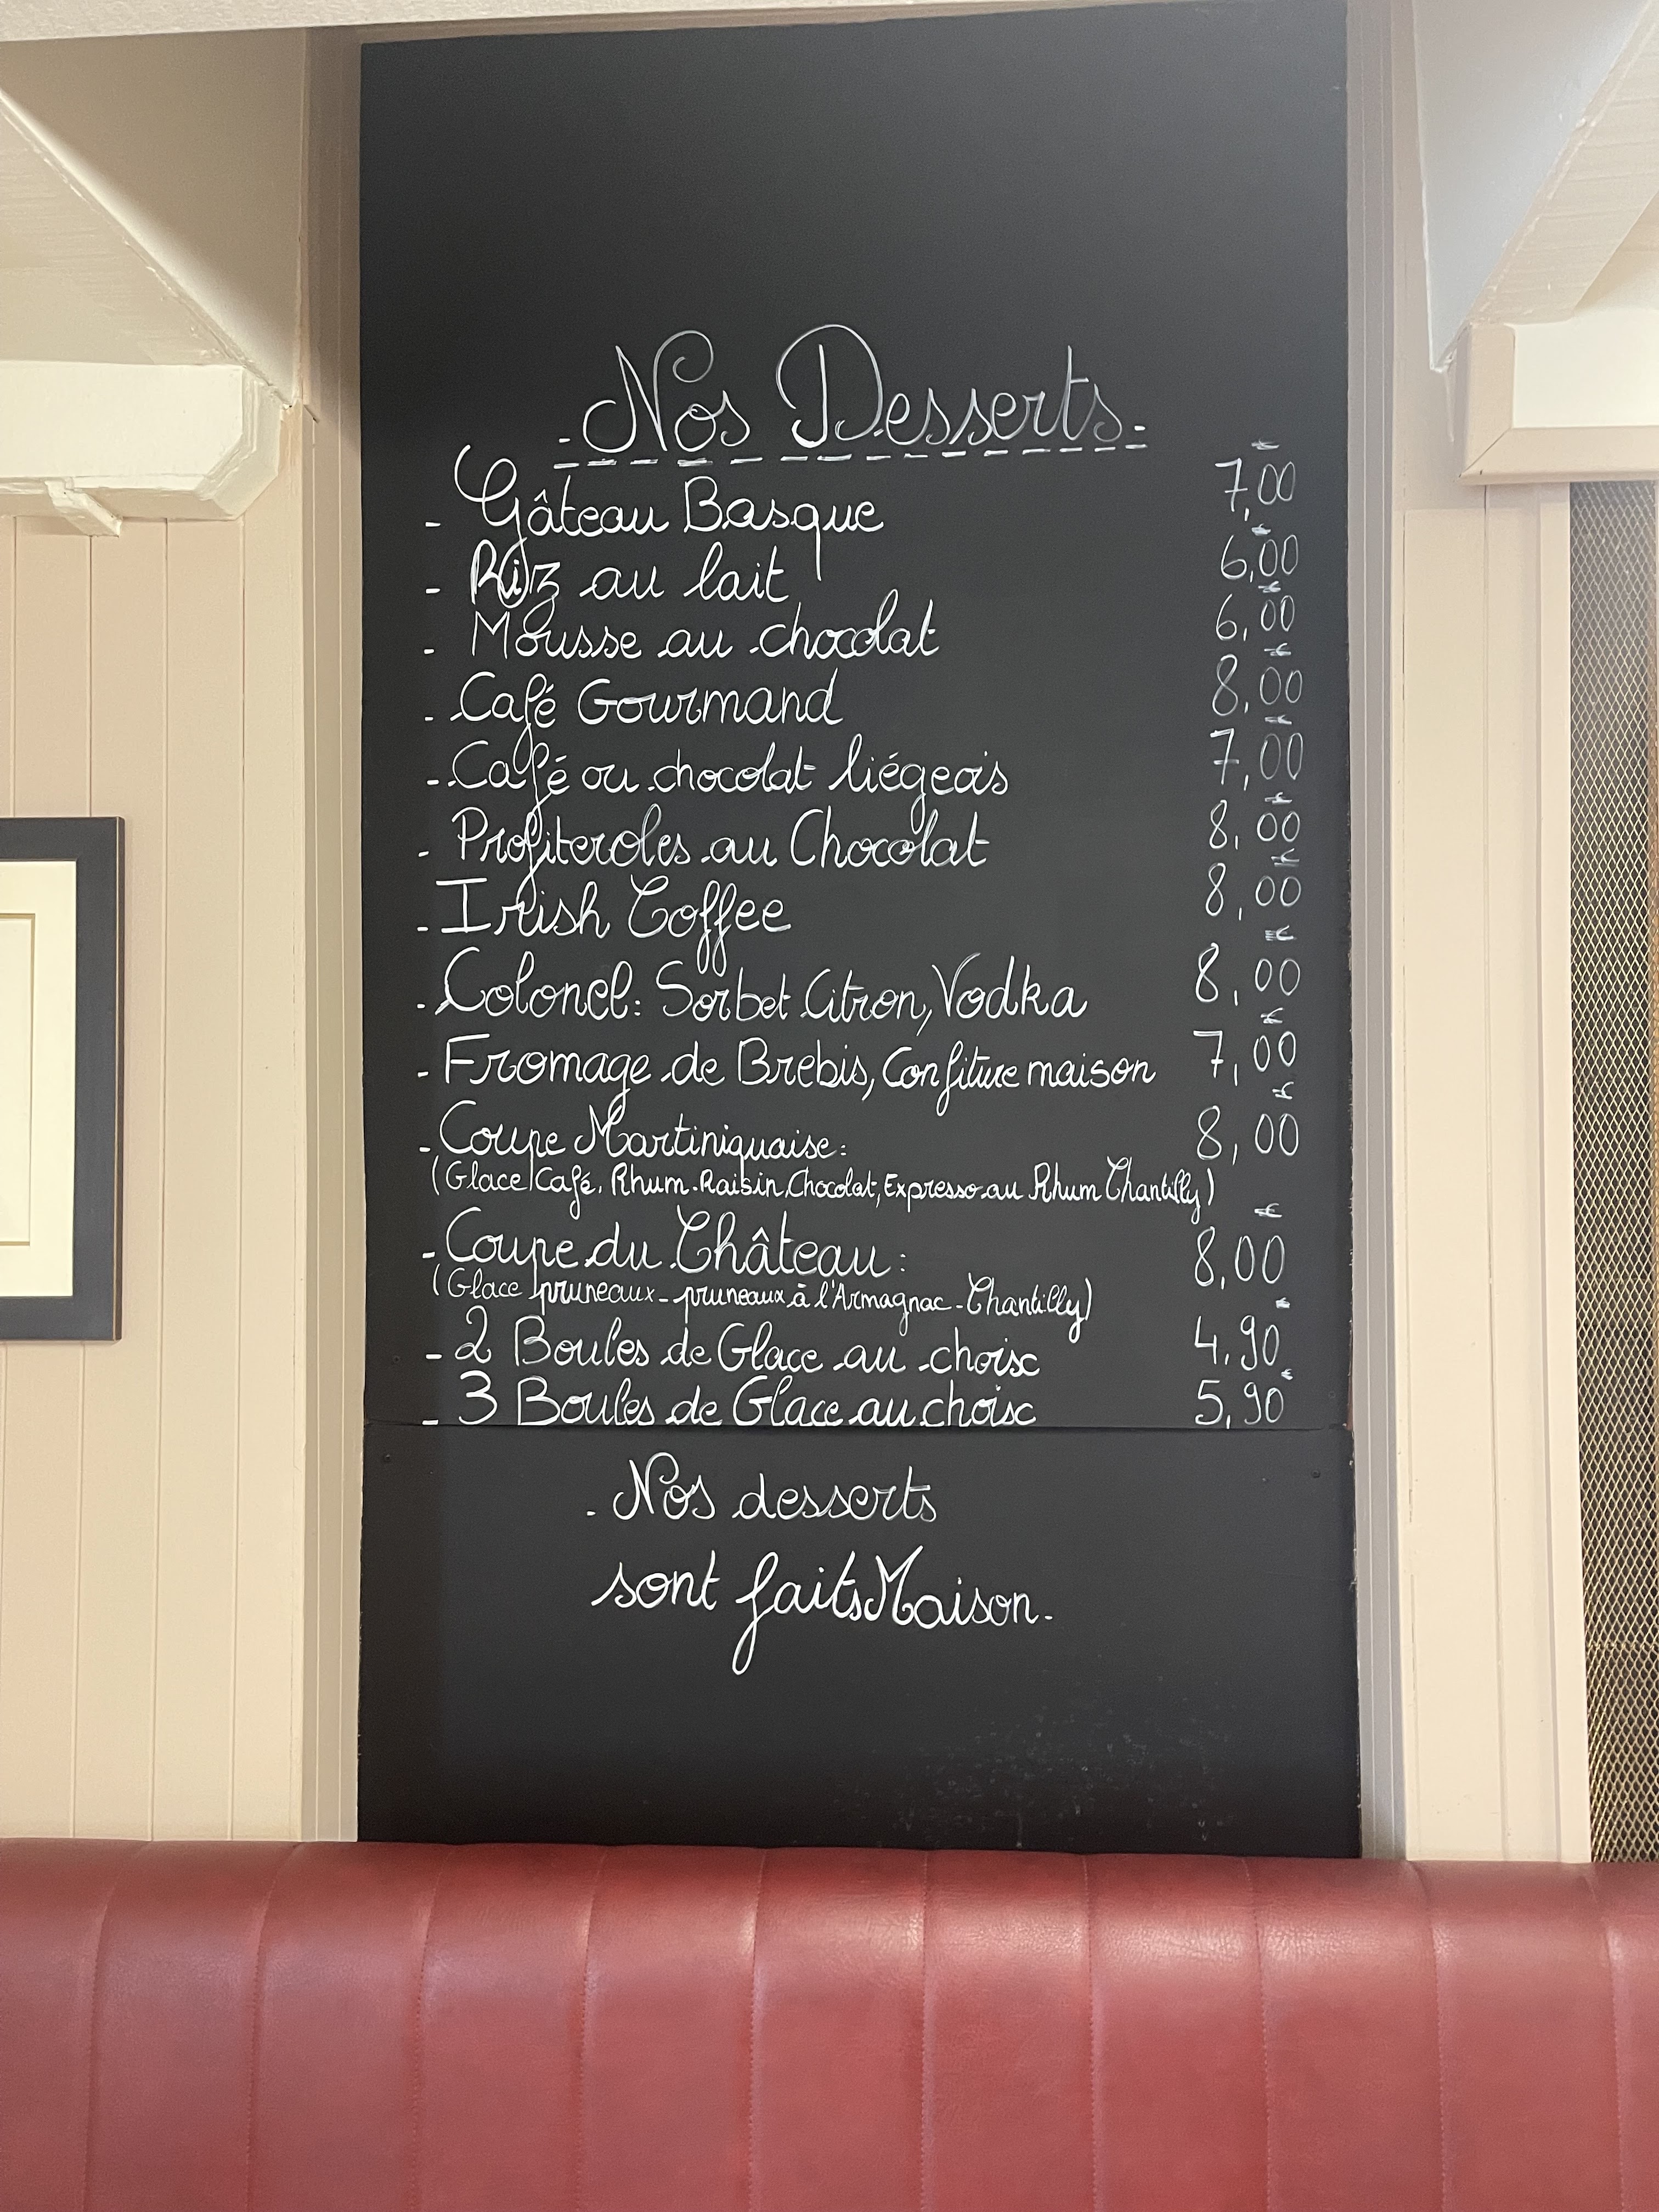 - Nos Desserts -
- Gâteau Basque 7,00 €
- Riz au lait 6,00 €
- Mousse au chocolat 6,00 €
- Café Gourmand 8,00 €
- Café ou chocolat liégeois 7,00 €
- Profiteroles au Chocolat 8,00 €
- Irish Coffee 8,00 €
- Colonel: Sorbet Citron, Vodka 8,00 €
- Fromage de Brebis, Confiture maison 7,00 €
- Coupe Martiniquaise: 8,00 €
(Glace Café, Rhum-Raisin, Chocolat, Expresso au Rhum Chantilly)
- Coupe du Château: 8,00 €
(Glace pruneaux - pruneaux à l'Armagnac - Chantilly)
- 2 Boules de Glace au choix 4,90 €
- 3 Boules de Glace au choix 5,90 €
- Nos desserts
sont faits Maison -